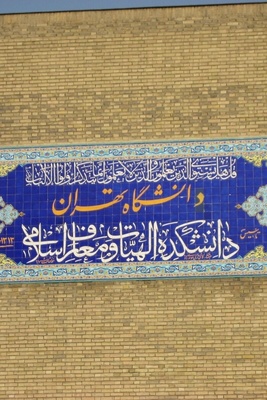 قل هل یستوی الذین یعلمون والذین لا یعلمون انما یتذکر اولوا الالباب
دانشگاه تهران
دانشکده الهیات و معارف اسلامی